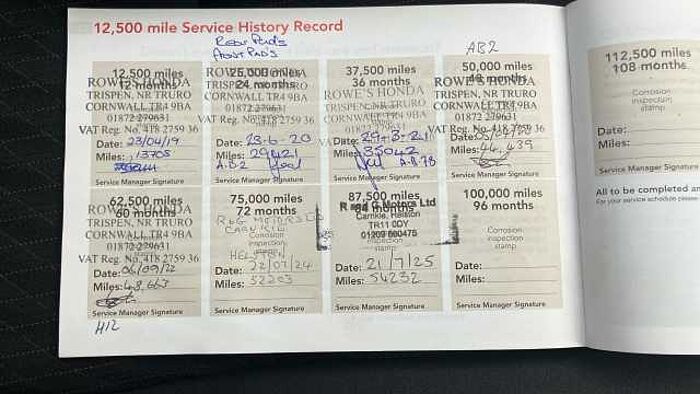 12,500 mile Service History Record
Rear Pad's
Front Pad's
AB2
12,500 miles
12 months
ROWE'S HONDA
TRISPEN, NR TRURO
CORNWALL TR4 9BA
01872 279631
VAT Reg. No. 418 2759 36
Date: 23/04/19
Miles: 13705
Service Manager Signature
25,000 miles
24 months
ROWE'S HONDA
TRISPEN, NR TRURO
CORNWALL TR4 9BA
01872 279631
VAT Reg. No. 418 2759 36
Date: 23-6-20
Miles: 29421
A-B-2
Service Manager Signature
37,500 miles
36 months
ROWE'S HONDA
TRISPEN, NR TRURO
CORNWALL TR4 9BA
01872 279631
Date: 29-3-21
Miles: 35042
A-B-78
Service Manager Signature
50,000 miles
48 months
ROWE'S HONDA
TRISPEN, NR TRURO
CORNWALL TR4 9BA
01872 279631
VAT Reg. No. 418 2759 36
Date:
Miles: 44,439
Service Manager Signature
62,500 miles
60 months
ROWE'S HONDA
TRISPEN, NR TRURO
CORNWALL TR4 9BA
01872 279631
VAT Reg. No. 418 2759 36
Date: 06/09/22
Miles: 48,663
Service Manager Signature
A12
75,000 miles
72 months
R&G MOTORS LTD
Corrosion
inspection
stamp
HELSTON
Date: 22/07/24
Miles: 52203
Service Manager Signature
87,500 miles
84 months
R and G Motors Ltd
Carnkie, Helston
TR11 0DY
01209 860475
Date: 21/7/25
Miles: 54232
Service Manager Signature
100,000 miles
96 months
Corrosion
inspection
stamp
Date:
Miles:
Service Manager Signature
112,500 miles
108 months
Corrosion
inspection
stamp
Date:
Miles:
Service Manager Signature
All to be completed a
For your service schedule please